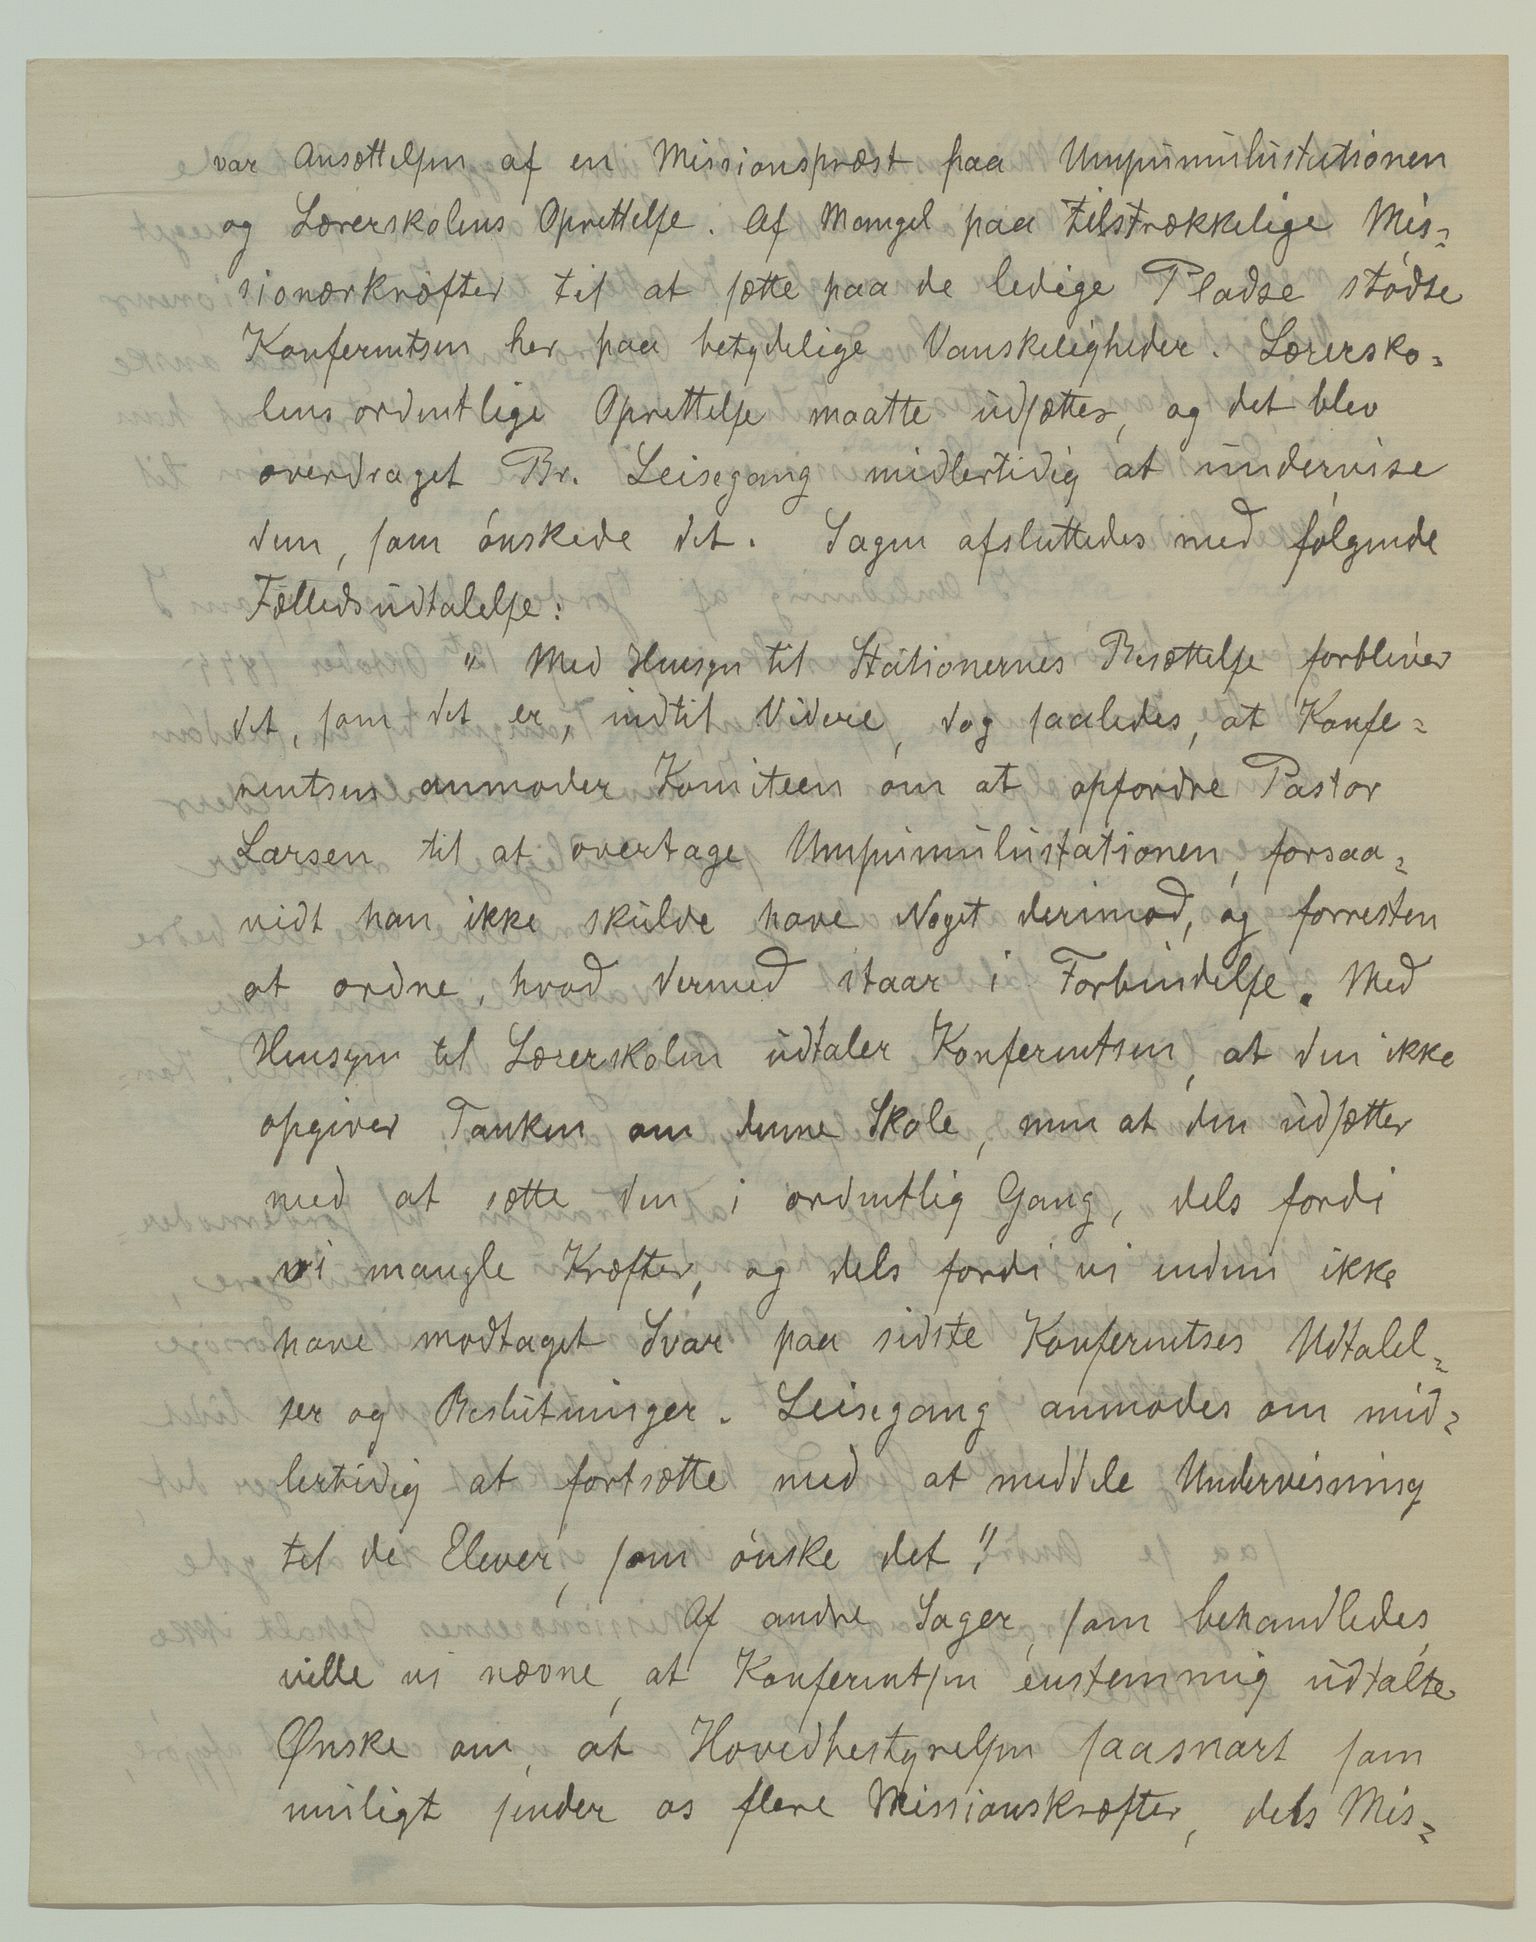 var Ansættelsen af en Missionspræst paa Umpumulustationen
og Lærerskolens Oprettelse. Af Mangel paa tilstrækkelige Mis=
sionærkræfter til at sætte paa de ledige Pladse stødte
Konferentsen her paa betydelige Vanskeligheder. Lærersko=
lens ordentlige Oprettelse maatte udsættes, og det blev
overdraget Br. Leisegang midlertidig at undervise
dem, som ønskede det. Sagen afsluttedes med følgende
Fællesudtalelse:
"Med Hensyn til Stationernes Besættelse forbliver
det, som det er, indtil Videre, dog saaledes, at Konfe=
rentsen anmoder Komiteen om at opfordre Pastor
Larsen til at overtage Umpumulustationen, forsaa=
vidt han ikke skulde have Noget derimod, og forresten
at ordne, hvad dermed staar i Forbindelse. Med
Hensyn til Lærerskolen udtaler Konferentsen, at den ikke
opgiver Tanken om denne Skole, men at den udsætter
med at sætte den i ordentlig Gang, dels fordi
vi mangle Kræfter, og dels fordi vi endnu ikke
have modtaget Svar paa sidste Konferentses Udtalel=
ser og Beslutninger. Leisegang anmodes om mid=
lertidig at fortsætte med at meddele Undervisning
til de Elever, som ønske det".
Af andre Sager, som behandledes,
ville vi nævne, at Konferentsen eenstemmig udtalte
Ønske om, at Hovedbestyrelsen saasnart som
muligt sender os flere Missionskræfter, dels Mis=